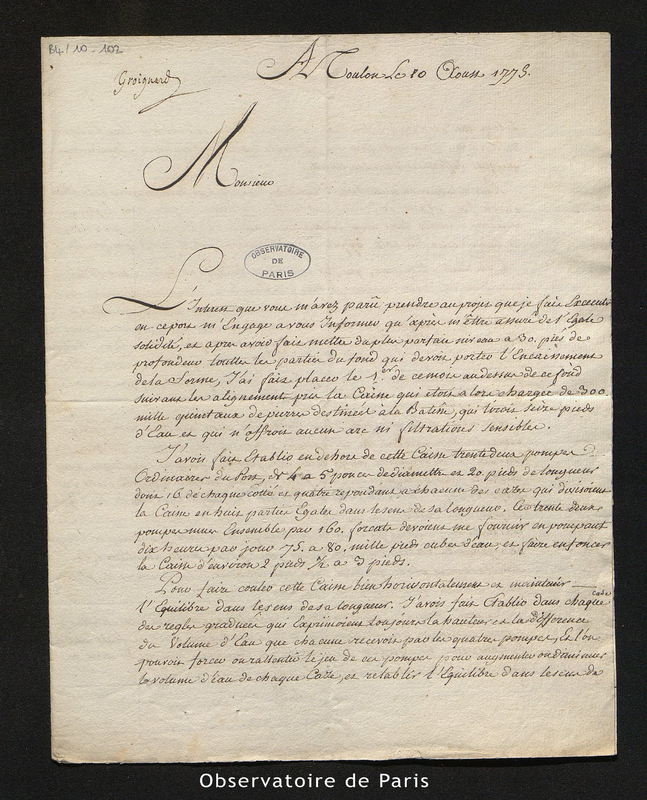 B4/10-102
Groignard
A Toulon Le 10 Aoust 1775.
Monsieur
OBSERVATOIRE
DE
PARIS
L'Interest que vous m'avez parû prendre au projet que je fais Executer
en ce port m'Engage a vous Informer qu'après m'être assuré de l'Egale
solidité, et apres avoir fait mettre du plus parfait niveau a 30. pieds de
profondeur toutes les parties du fond qui devoit porter l'Encaissement
de la forme, J'ai fait placer le 1.er de ce mois au dessus de ce fond
suivant les alignements pris la Caisse qui etoit alors chargée de 300.
mille quintaux de pierres destinées a la Batisse, qui tiroit seize pieds
d'Eau et qui n'offroit aucun arc ni filtrations sensibles.
J'avois fait Etablir en dehors de cette Caisse trente deux pompes
Ordinaires du Port, de 4 a 5 pouces de diametre et 20. pieds de longueur
dont 16 de chaque cotté et quatre repondans a chacune des cazes qui divisoient
la Caisse en huit parties Egales dans le sens de sa longueur. Ces trente deux
pompes mues Ensemble par 160. forcats devoient me fournir en pompant
dix heures par jour 75. a 80. mille pieds cubes d'eau, et faire enfoncer
la Caisse d'environ 2 pieds ½ a 3 pieds.
Pour faire couler cette Caisse bien horisontalement et maintenir
l'Equilibre dans le sens de sa longueur. J'avois fait Etablir dans chaque caze
des regles graduées qui Exprimoient toujours la hauteur et la difference
du Volume d'Eau que chacune recevoit par les quatre pompes, Et l'on
pouvoit forcer ou rallentir le jeu de ces pompes pour augmenter ou diminuer
le volume d'Eau de chaque Caze, et retablir l'Equilibre dans le sens de
Observatoire de Paris